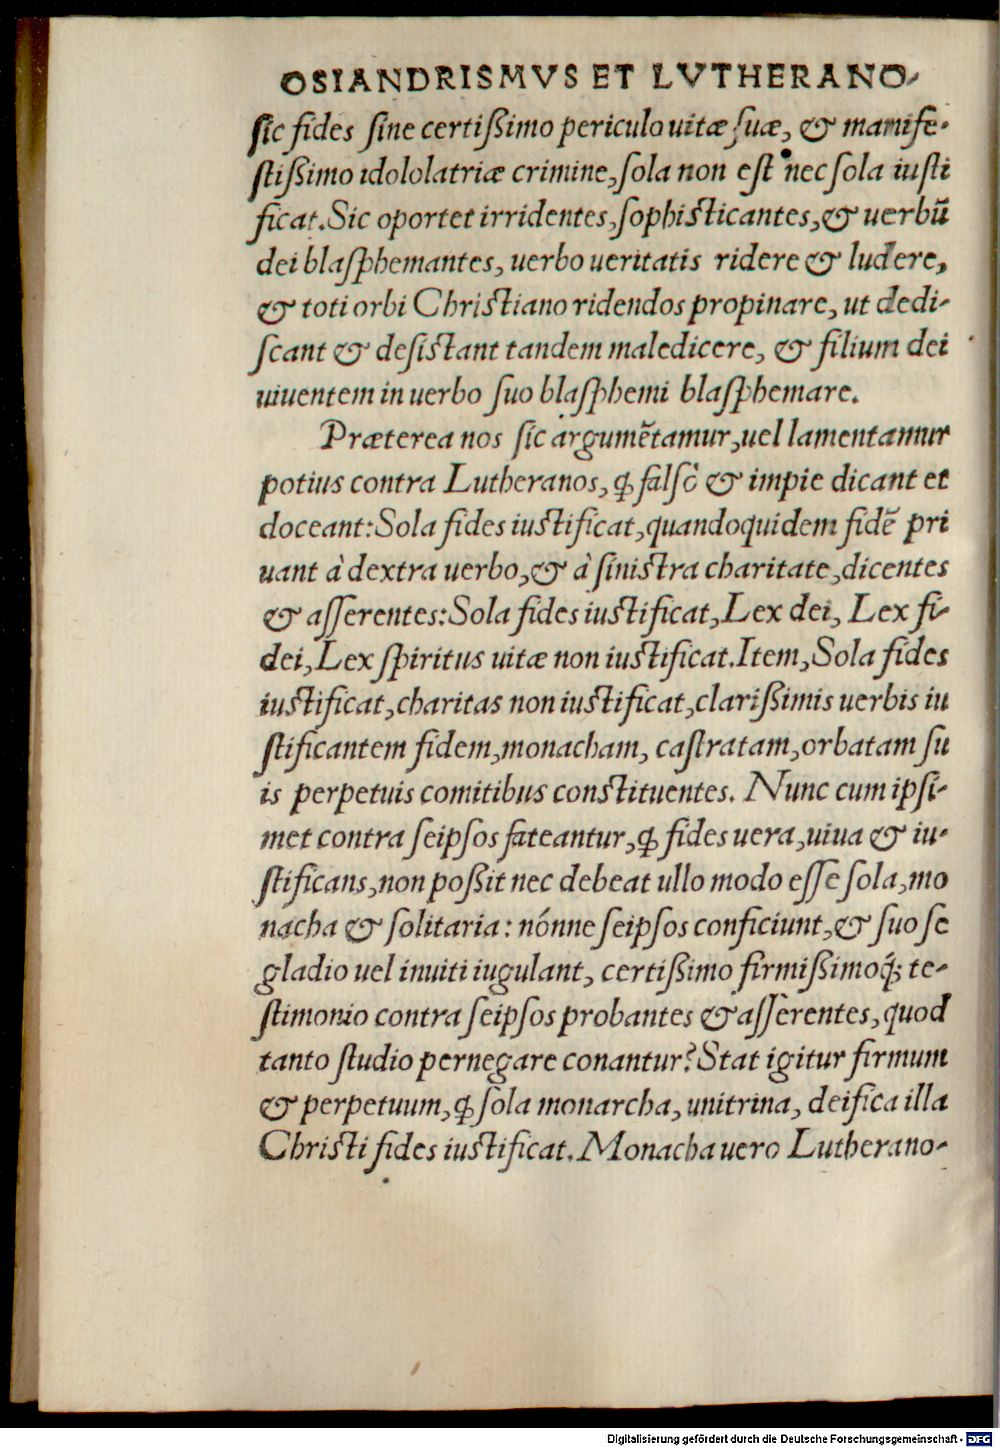 OSIANDRISMVS ET LVTHERANO-
sic fides sine certißimo periculo uitæ suæ, & manife-
stißimo idololatriæ crimine, sola non est nec sola iusti
ficat. Sic oportet irridentes, sophisticantes, & uerbũ
dei blasphemantes, uerbo ueritatis ridere & ludere,
& toti orbi Christiano ridendos propinare, ut dedi-
scant & desistant tandem maledicere, & filium dei
uiuentem in uerbo suo blasphemi blasphemare.
Præterea nos sic argumẽtamur, uel lamentamur
potius contra Lutheranos, ꝙ falsò & impie dicant et
doceant: Sola fides iustificat, quandoquidem fidẽ pri
uant à dextra uerbo, & à sinistra charitate, dicentes
& asserentes: Sola fides iustificat, Lex dei, Lex fi-
dei, Lex spiritus uitæ non iustificat. Item, Sola fides
iustificat, charitas non iustificat, clarißimis uerbis iu
stificantem fidem, monacham, castratam, orbatam su
is perpetuis comitibus constituentes. Nunc cum ipsi-
met contra seipsos fateantur, ꝙ fides uera, uiua & iu-
stificans, non poßit nec debeat ullo modo esse sola, mo
nacha & solitaria: nónne seipsos conficiunt, & suo se
gladio uel inuiti iugulant, certißimo firmißimoq́; te-
stimonio contra seipsos probantes & asserentes, quod
tanto studio pernegare conantur? Stat igitur firmum
& perpetuum, ꝙ sola monarcha, unitrina, deifica illa
Christi fides iustificat. Monacha uero Lutherano-
Digitalisierung gefördert durch die Deutsche Forschungsgemeinschaft - DFG